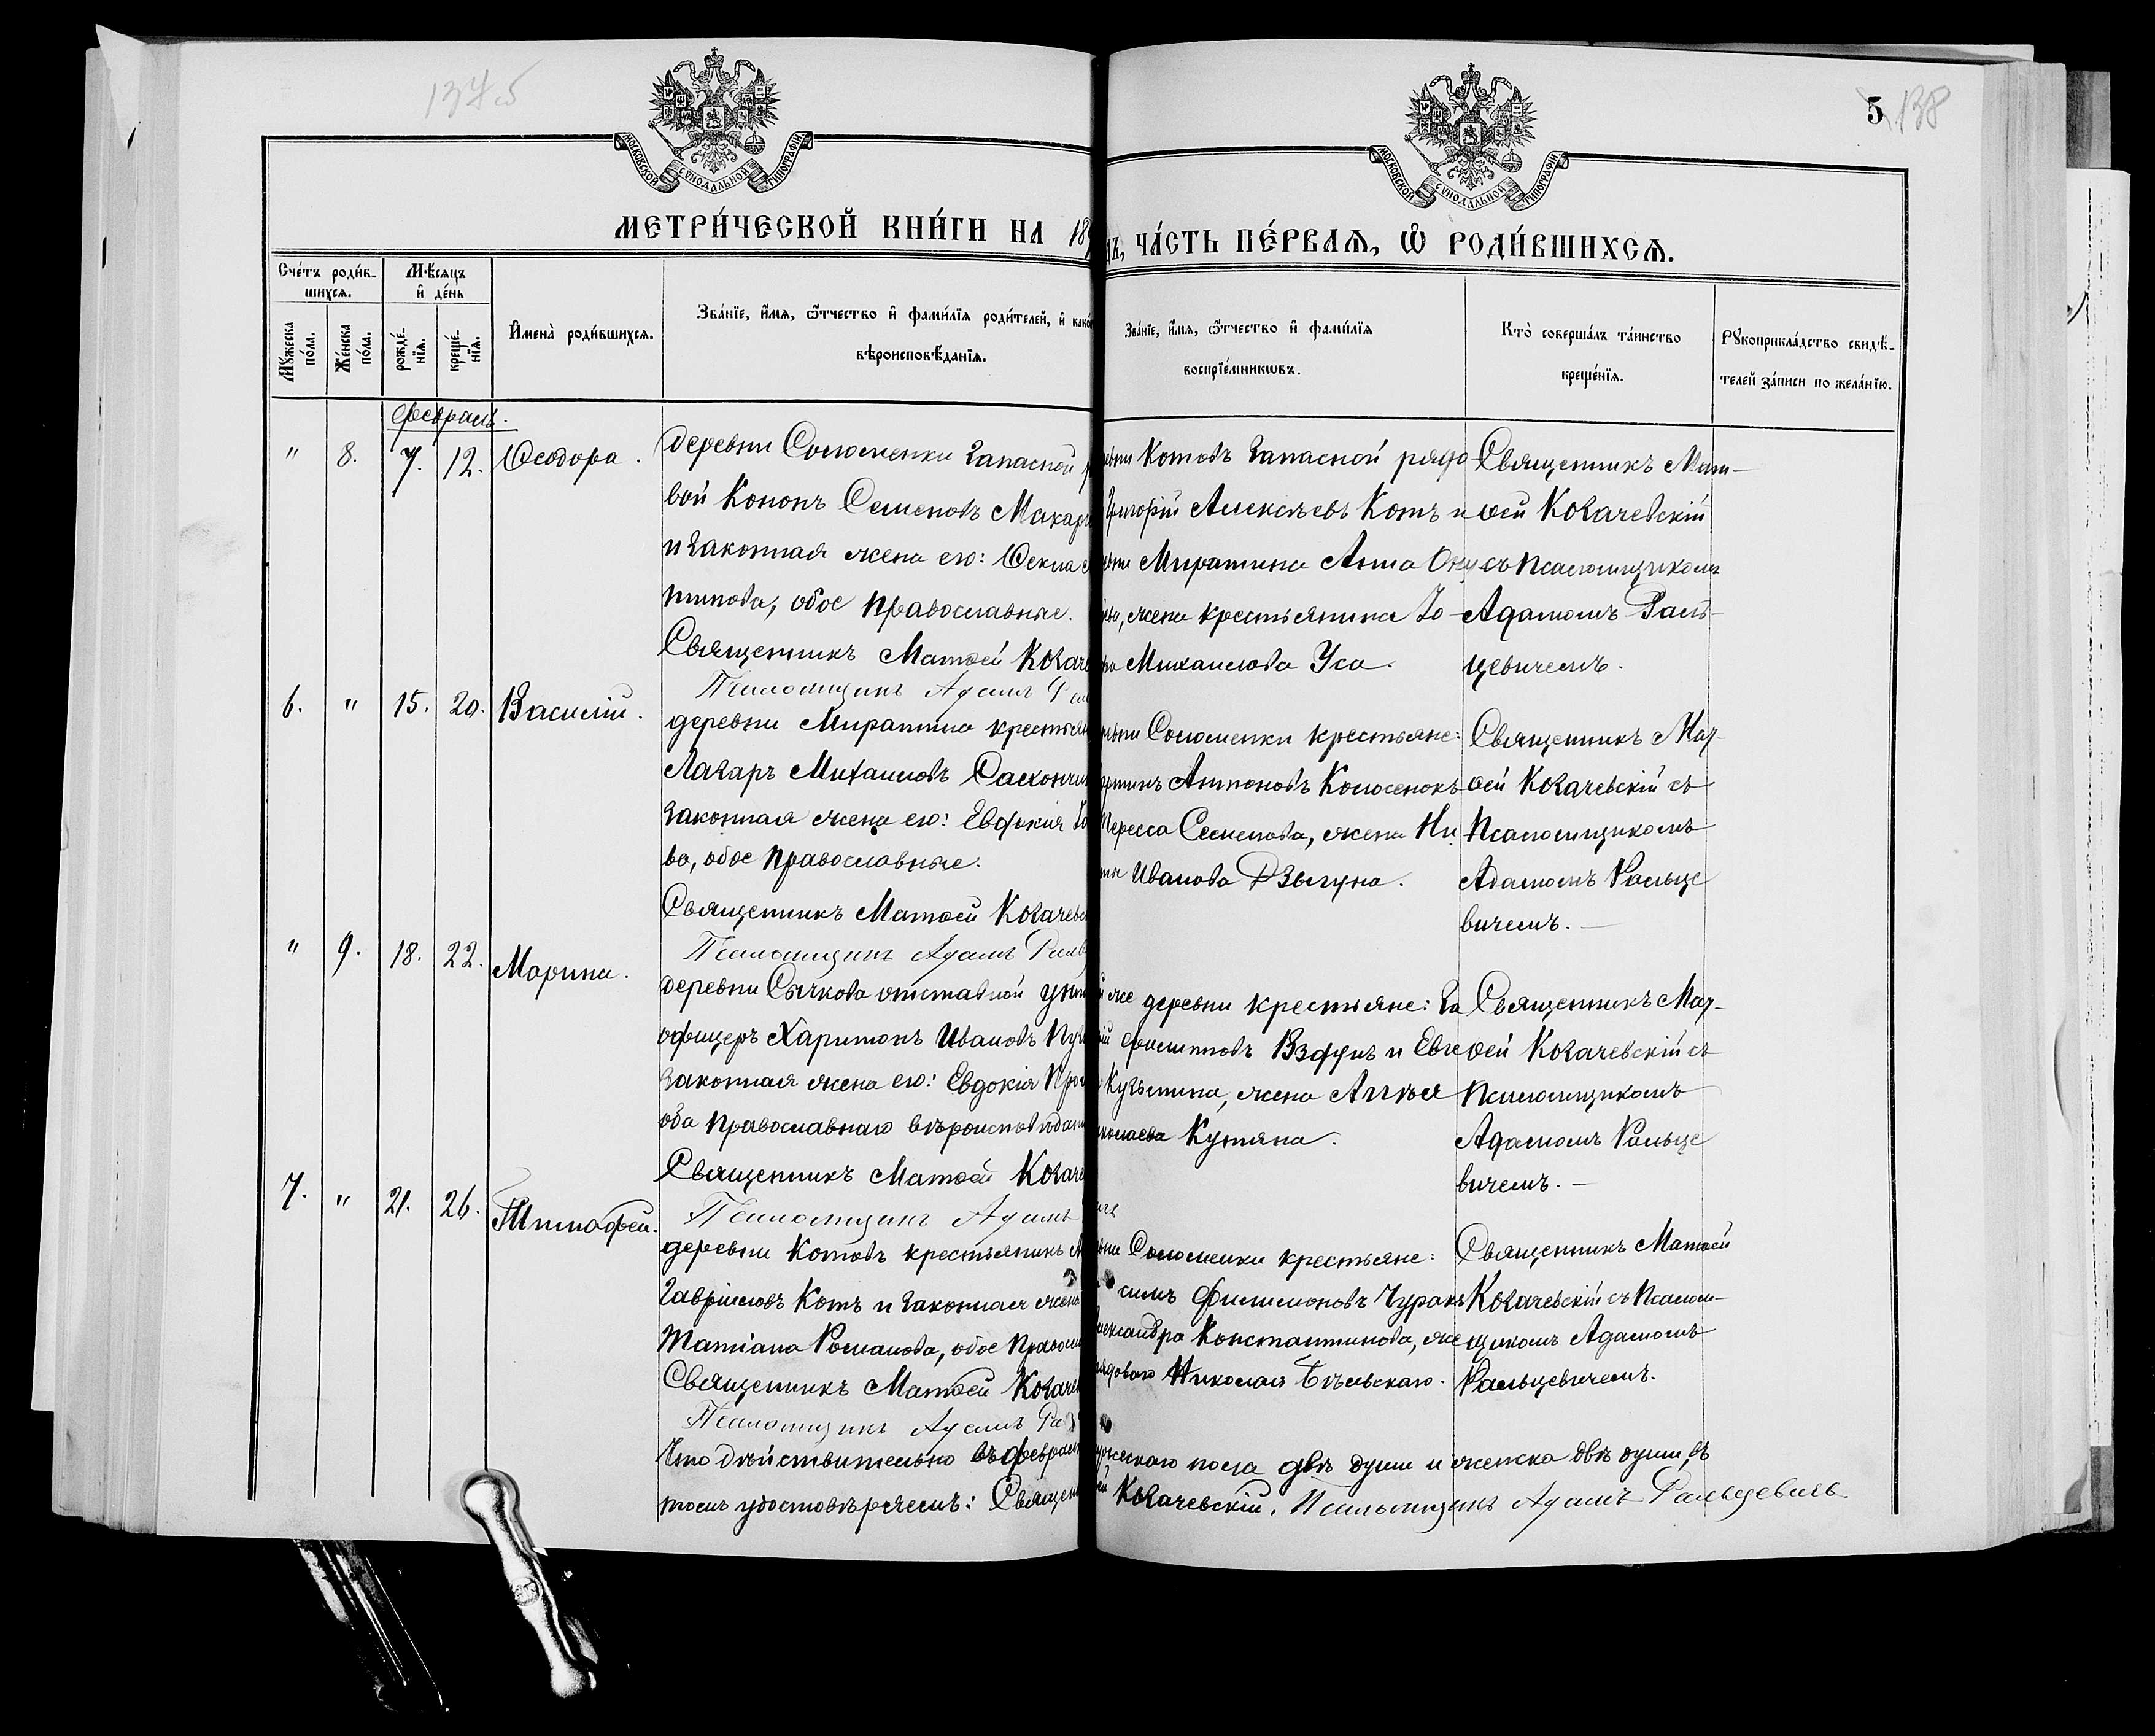 137об
5 138
МОСКОВСКОЙ СѴНОДАЛЬНОЙ ТИПОГРАФІИ
МОСКОВСКОЙ СѴНОДАЛЬНОЙ ТИПОГРАФІИ
МЕТРИ́ЧЕСКОЙ КНИ́ГИ НА 18
ЧА́СТЬ ПЕ́РВАѦ, Ѡ҆ РОДИ́ВШИХСѦ.
Сче́тъ роди́в-
шихсѧ.
Мꙋ́жеска по́ла.
Же́нска по́ла.
Мѣ́сѧцъ
и҆ де́нь
рожде́-нїѧ.
креще́-нїѧ.
И҆мена̀ роди́вшихсѧ.
Зва́нїе, и҆́мѧ, ѻ҆́тчество и҆ фами́лїѧ роди́телей, и҆ како
вѣроисповѣ́данїѧ.
Зва́нїе, и҆́мѧ, ѻ҆́тчество и҆ фами́лїѧ
воспрїе́мникѡвъ.
Кто̀ соверша́лъ та́инство
креще́нїѧ.
Рꙋкоприкла́дство свидѣ́-
телей за́писи по жела́нїю.
Февраль.
" 8. 7. 12. Ѳеодора.
деревни Соломенки запасной
вой Кононъ Семеновъ Макар
и законная жена его: Ѳекла
типова, обое православные.
Священникъ Матѳей Козаче
Псаломщикъ Адамъ Рал
Котовъ запасной рядо
Григорій Алексѣевъ Котъ и
Миратина Анна
жена крестьянина Іо
Михаилова Уса.
Священникъ Мат-
ѳей Козачевскій
съ псаломщикомъ
Адамомъ Раль-
цевичемъ.
6. " 15. 20. Василій.
деревни Миратина крестьян
Лазаръ Михаиловъ
законная жена его: Евфимія
ва, обое православные.
Священникъ Матѳей Козачевс
Псаломщикъ Адамъ Раль
Соломенки крестьяне:
Антоновъ Колосенокъ
Семенова, жена Ни
Иванова Дзыгуна.
Священникъ Мат-
ѳей Козачевскій съ
Псаломщикомъ
Адамомъ Ральце
вичемъ. —
" 9. 18. 22. Марина.
деревни Сычкова отставной унт
офицеръ Харитонъ Ивановъ
законная жена его: Евдокія Про
оба православнаго вѣроисповѣдан
Священникъ Матѳей Козаче
Псаломщикъ Адамъ
же деревни крестьяне: За
Филипповъ и Евге
Кузьмина, жена Аггѣя
колаева Кутяна.
Священникъ Мат-
ѳей Козачевскій съ
Псаломщикомъ
Адамомъ Ральце
вичемъ. —
7. " 21. 26. Тимофей.
деревни Котовъ крестьянинъ
Гавріиловъ Котъ и законная жена
Татіана Романова, обое правосл
Священникъ Матѳей Козачев
Псаломщикъ Адамъ Ра
Соломенки крестьяне:
симъ Филимоновъ Чуракъ
лександра Константинова, же
рядоваго Николая Бѣльскаго.
Священникъ Матѳей
Козачевскій съ Псалом-
щикомъ Адамомъ
Ральцевичемъ.
Что дѣйствительно въ феврал
мужескаго пола двѣ души и женска двѣ души, въ
томъ удостовѣряемъ: Священ
Козачевскій. Псаломщикъ Адамъ Ральцевичъ